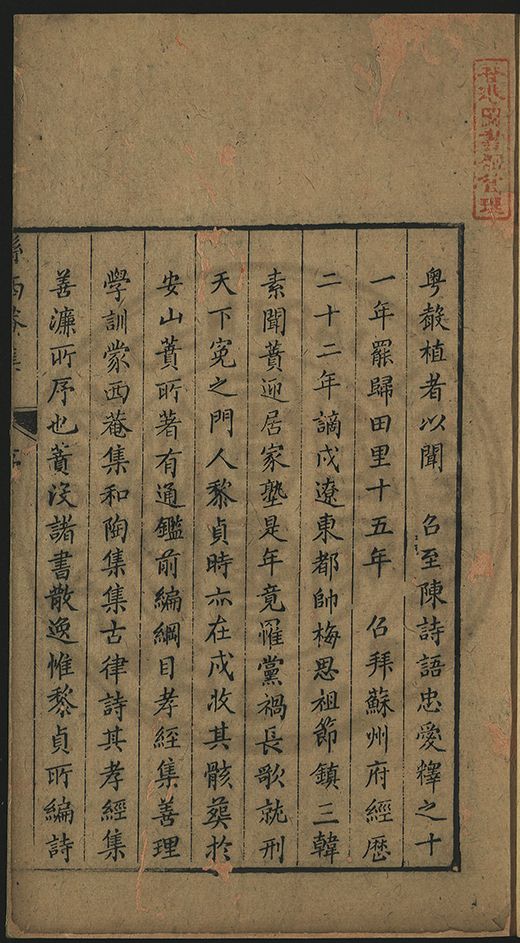 粤鼗植者以聞　召至陳詩語忠愛釋之十
一年罷歸田里十五年　召拜蘇州府經歷
二十二年謫戍遼東都帥梅思祖節鎮三韓
素聞蕡迎居家塾是年竟罹黨禍長歌就刑
天下寃之門人黎貞時亦在戍收其骸葬於
安山蕡所著有通鑑前編綱目孝經集善理
學訓蒙西菴集和陶集集古律詩其孝經集
善濂所序也蕡沒諸書散逸惟黎貞所編詩
西菴集